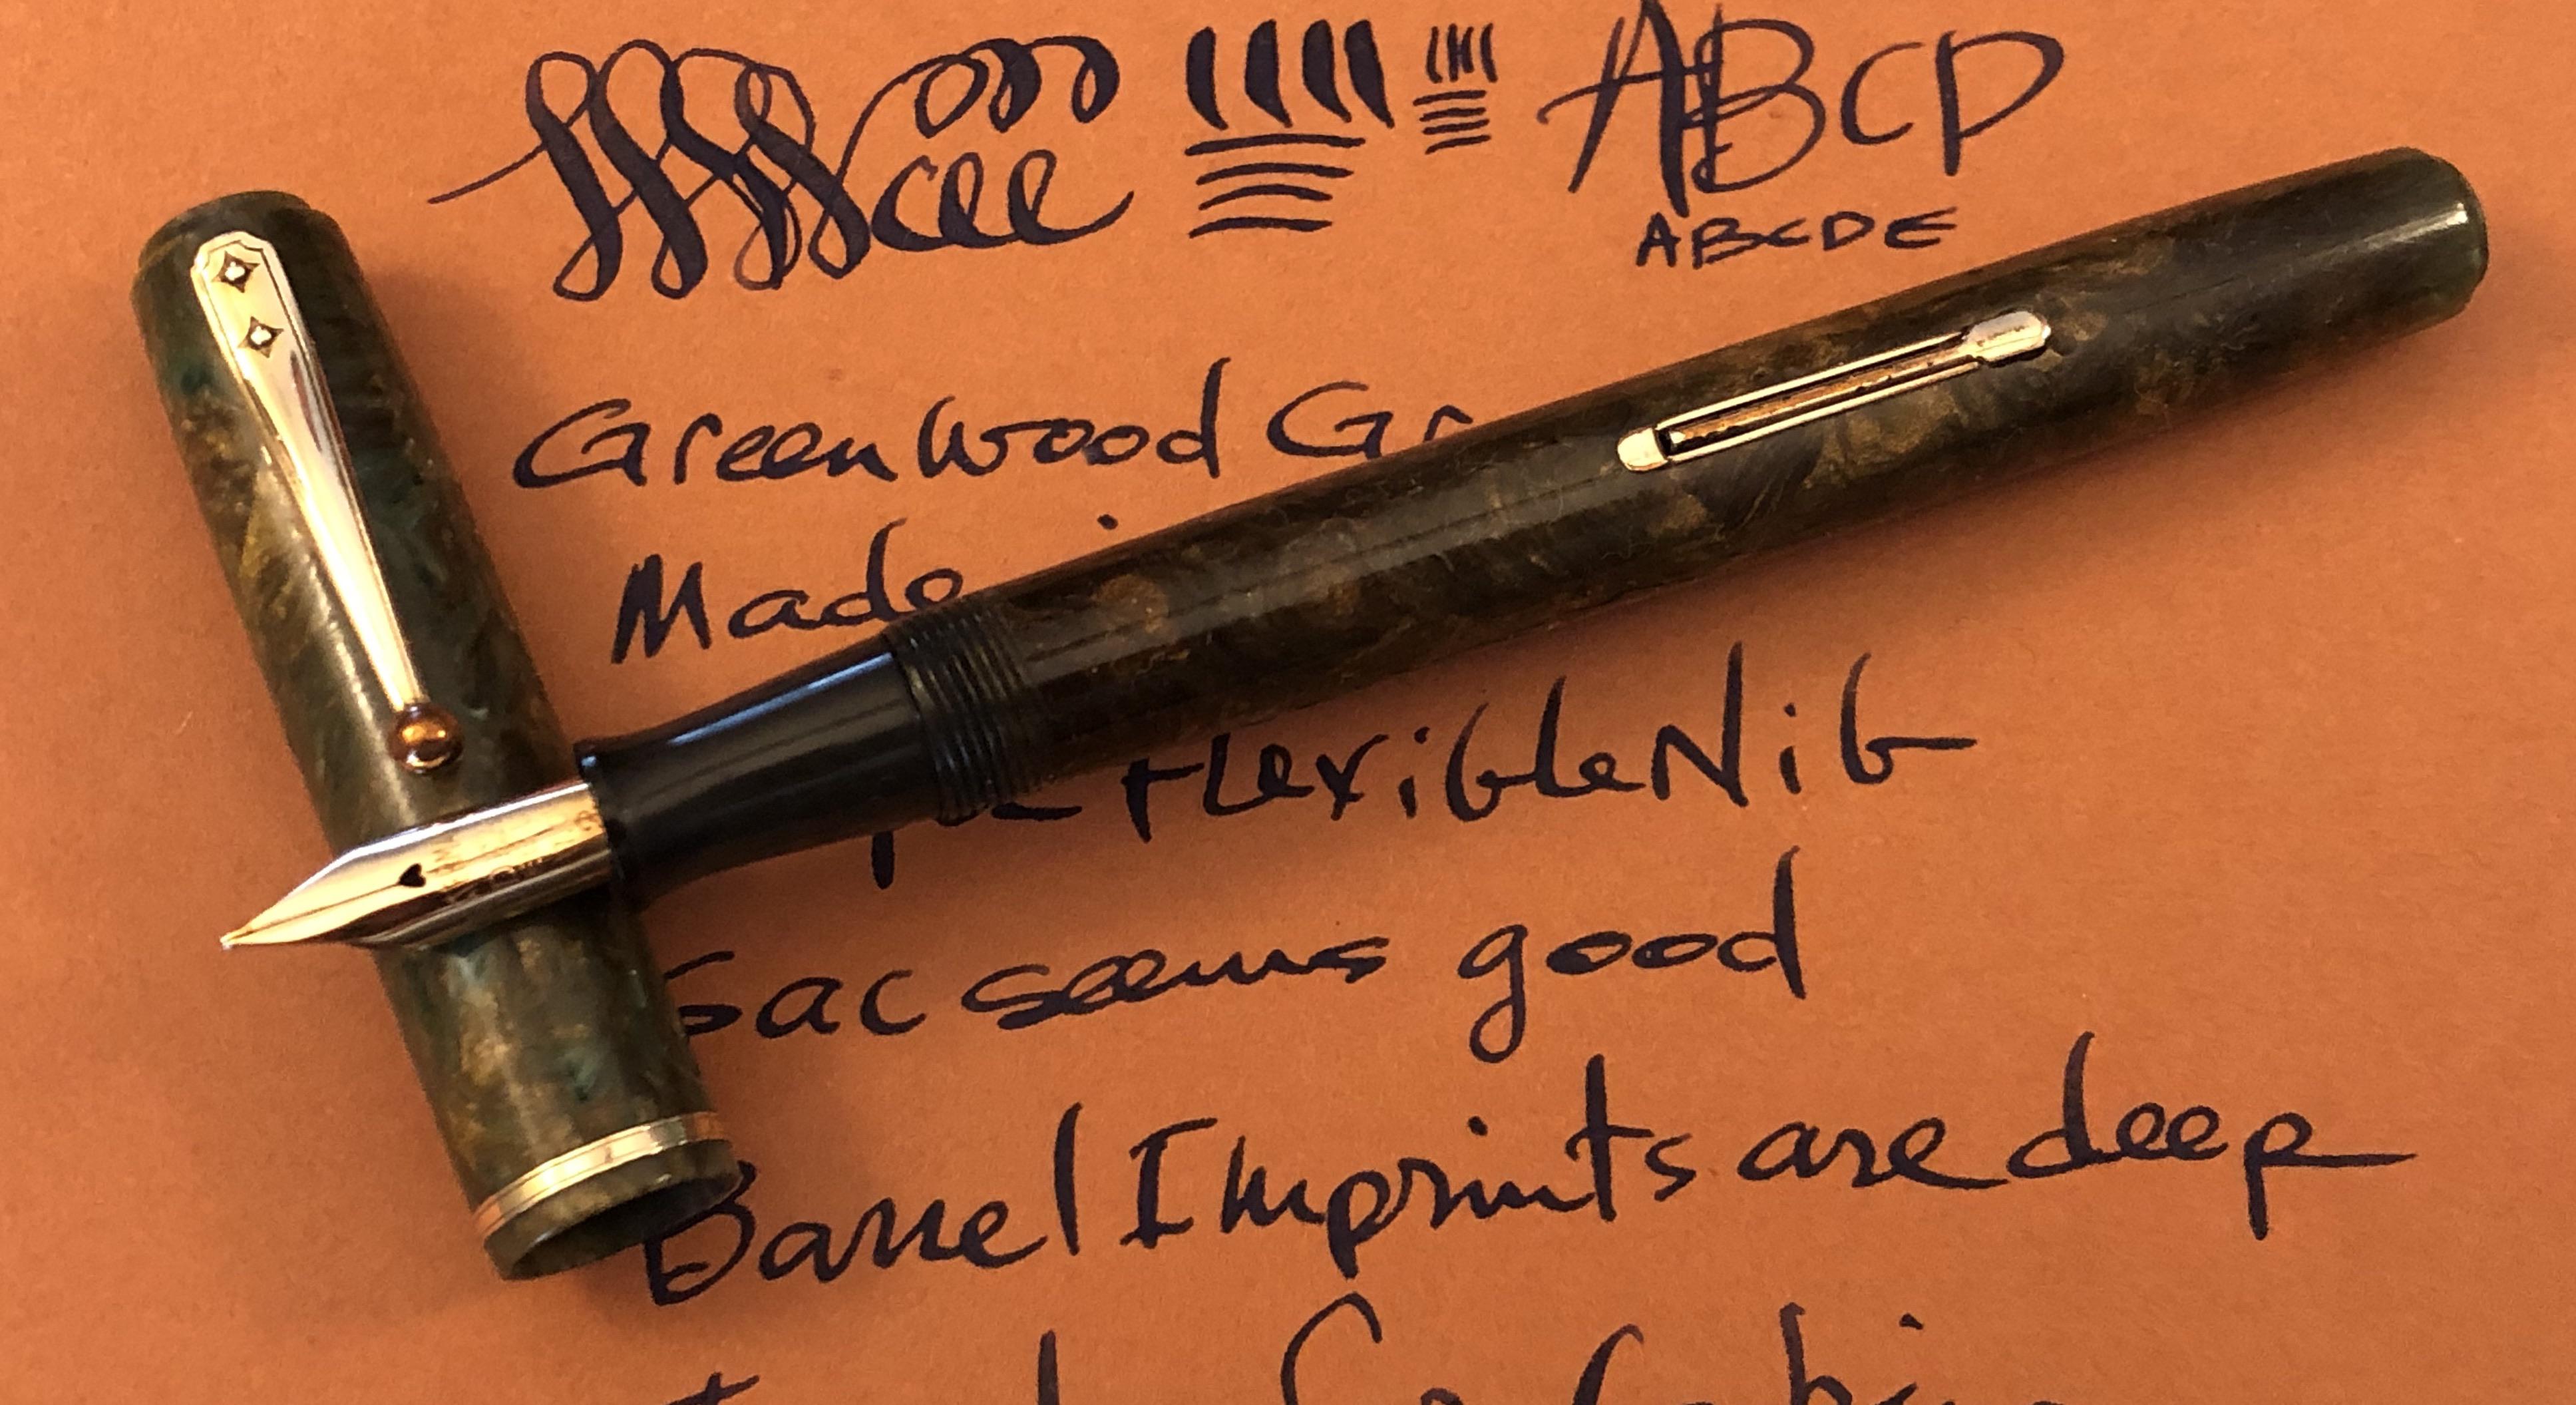 ABCD
ABCDE
Greenwood Gr
Made
Flexible Nib
Sac seems good
Barrel Imprints are deep